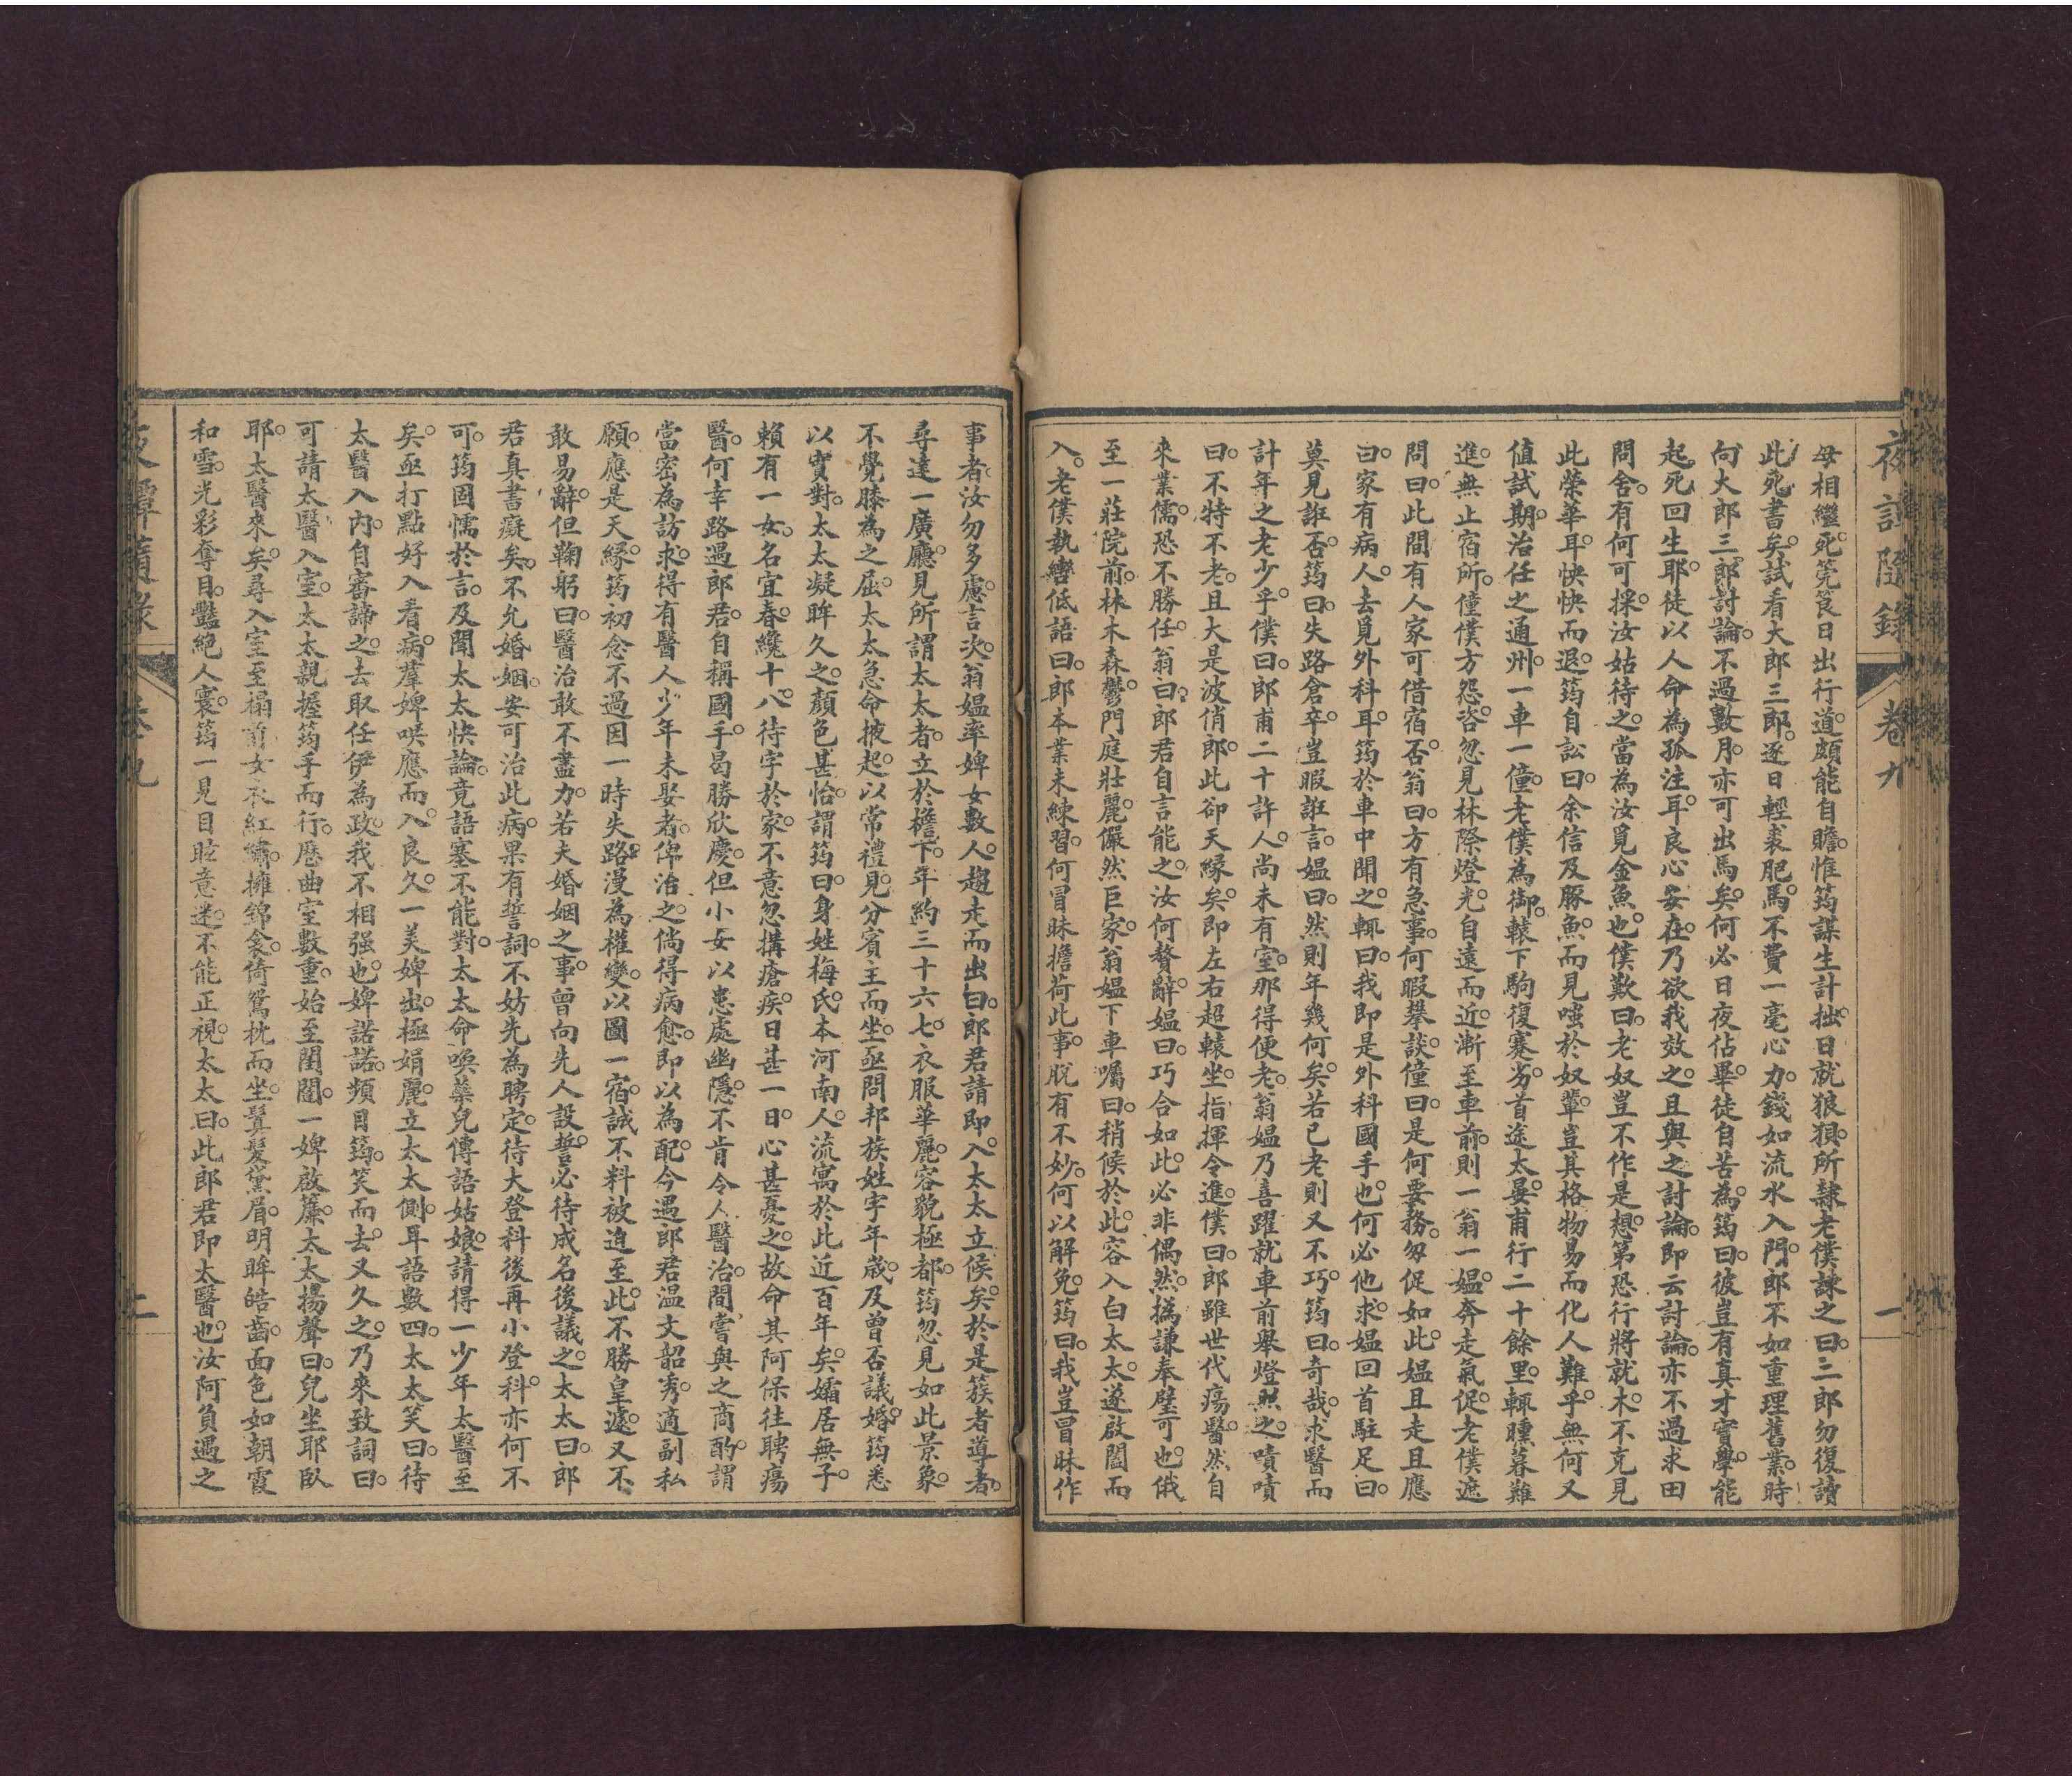 夜譚隨錄 卷九 一
母相繼死。筦箵日出行道。頗能自贍。惟筠謀生計拙。日就狼狽。所隸老僕諫之曰。二郎勿復讀
此死書矣。試看大郎三郎。逐日輕裘肥馬。不費一毫心力。錢如流水入門。郎不如重理舊業。時
向大郎三郎討論。不過數月。亦可出馬矣。何必日夜佔畢。徒自苦為。筠曰。彼豈有真才實學。能
起死回生耶。徒以人命為孤注耳。良心安在。乃欲我效之。且與之討論。即云討論。亦不過求田
問舍。有何可採。汝姑待之。當為汝覓金魚也。僕歎曰。老奴豈不作是想。第恐行將就木。不克見
此榮華耳。怏怏而退。筠自訟曰。余信及豚魚。而見嗤於奴輩。豈其格物易而化人難乎。無何又
值試期。治任之通州。一車一僮。老僕為御。轅下駒復蹇劣。首途太晏。甫行二十餘里。輒曛暮難
進。無止宿所。僮僕方怨咨。忽見林際燈光。自遠而近。漸至車前。則一翁一媼。奔走氣促。老僕遮
問曰。此間有人家可借宿否。翁曰。方有急事。何暇攀談。僮曰。是何要務。匆促如此。媼且走且應
曰。家有病人。去覓外科耳。筠於車中聞之。輒曰。我即是外科國手也。何必他求。媼回首駐足曰。
莫見誑否。筠曰。失路倉卒。豈暇誑言。媼曰。然則年幾何矣。若已老則又不巧。筠曰。奇哉。求醫而
計年之老少乎。僕曰。郎甫二十許人。尚未有室。那得便老。翁媼乃喜躍就車前舉燈照之。嘖嘖
曰。不特不老。且大是波俏郎。此卻天緣矣。即左右超轅坐。指揮令進。僕曰。郎雖世代瘍醫。然自
來業儒。恐不勝任。翁曰。郎君自言能之。汝何贅辭。媼曰。巧合如此。必非偶然。撝謙奉璧可也。俄
至一莊院前。林木森鬱。門庭壯麗。儼然巨家。翁媼下車。囑曰。稍候於此。容入白太太。遂啟闔而
入。老僕執轡低語曰。郎本業未練習。何冒昧擔荷此事。脫有不妙。何以解免。筠曰。我豈冒昧作
事者。汝勿多慮。言次。翁媼率婢女數人。趨走而出曰。郎君請即入。太太立候矣。於是簇者導者。
尋達一廣廳。見所謂太太者。立於檐下。年約三十六七。衣服華麗。容貌極都。筠忽見如此景象。
不覺膝為之屈。太太急命掖起。以常禮見。分賓主而坐。亟問邦族姓字年歲。及曾否議婚。筠悉
以實對。太太凝眸久之。顏色甚怡。謂筠曰。身姓梅氏。本河南人。流寓於此近百年矣。孀居無子。
賴有一女。名宜春。纔十八。待字於家。不意忽搆瘡疾。日甚一日。心甚憂之。故命其阿保往聘瘍
醫。何幸路過郎君。自稱國手。曷勝欣慶。但小女以患處幽隱。不肯令人醫治。間嘗與之商酌。謂
當密為訪求。得有醫人少年未娶者。俾治之。倘得病愈。即以為配。今遇郎君温文韶秀。適副私
願。應是天緣。筠初念不過因一時失路。漫為權變。以圖一宿。誠不料被迫至此。不勝皇遽。又不
敢易辭。但鞠躬曰。醫治敢不盡力。若夫婚姻之事。曾向先人設誓。必待成名後議之。太太曰。郎
君真書癡矣。不允婚姻。安可治此病。果有誓詞。不妨先為聘定。待大登科後再小登科。亦何不
可。筠固懦於言。及聞太太快論。竟語塞不能對。太太命喚藥兒傳語姑娘。請得一少年太醫至
矣。亟打點好入看病。羣婢哄應而入。良久。一美婢出。極娟麗。立太太側。耳語數四。太太笑曰。待
太醫入內。自審諦之。去取任伊為政。我不相强也。婢諾諾。頻目筠。笑而去。又久之。乃來致詞曰。
可請太醫入室。太太親握筠手而行。歷曲室數重。始至閨闥。一婢啟簾。太太揚聲曰。兒坐耶臥
耶。太醫來矣。尋入室至榻前。女衣紅繡。擁錦衾。倚鴛枕而坐。鬒髮黛眉。明眸皓齒。面色如朝霞
和雪。光彩奪目。豔絕人寰。筠一見目眩意迷。不能正視。太太曰。此郎君即太醫也。汝阿負遇之
夜譚隨錄 卷九 二